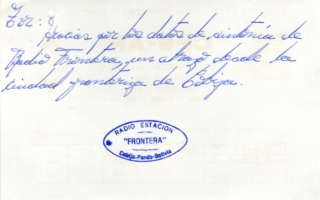 Gracias por los datos de sintonía de
Radio Frontera, un abrazo desde la
ciudad fronteriza de Cobija.
RADIO ESTACION
"FRONTERA"
Cobija-Pando-Bolivia